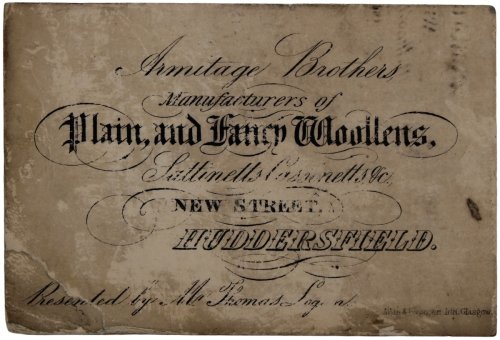 Armitage Brothers
Manufacturers of
Plain, and Fancy Woollens,
Sattinetts Cassinetts &c,
NEW STREET,
HUDDERSFIELD.
Presented by Mr Thomas
Lith, Glasgow